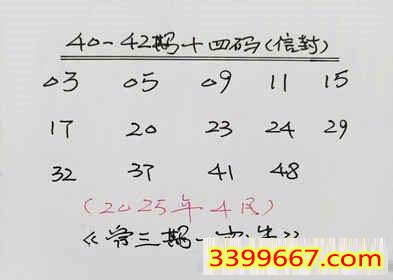 40-42期十四码(信封)
03 05 09 11 15
17 20 23 24 29
32 37 41 48
(2025年4民)
《常三期一
3399667.com